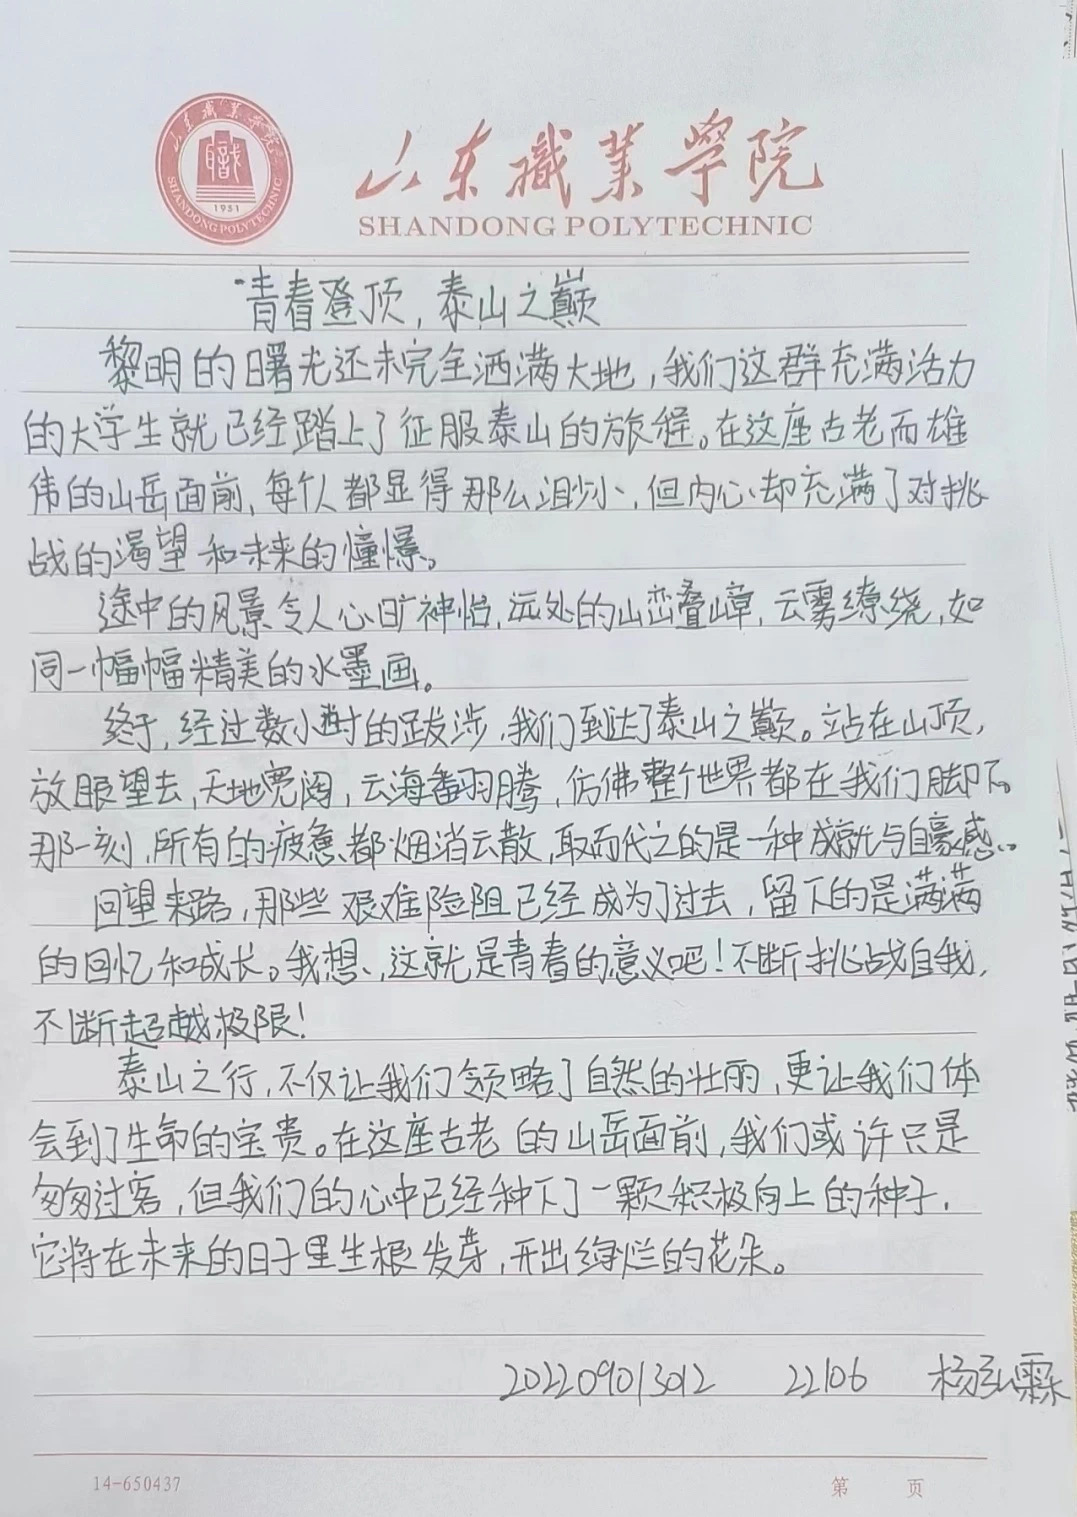 山东职业学院
SHANDONG POLYTECHNIC
山东职业学院
職
1951
SHANDONG POLYTECHNIC
青春登顶，泰山之巅
黎明的曙光还未完全洒满大地，我们这群充满活力
的大学生就已经踏上了征服泰山的旅程。在这座古老而雄
伟的山岳面前，每个人都显得那么渺小，但内心却充满了对挑
战的渴望和未来的憧憬。
途中的风景令人心旷神怡，远处的山峦叠嶂，云雾缭绕，如
同一幅幅精美的水墨画。
终于，经过数小时的跋涉，我们到达了泰山之巅。站在山顶，
放眼望去，天地宽阔，云海翻腾，仿佛整个世界都在我们脚下。
那一刻，所有的疲惫都烟消云散，取而代之的是一种成就与自豪感。
回望来路，那些艰难险阻已经成为了过去，留下的是满满
的回忆和成长。我想，这就是青春的意义吧！不断挑战自我，
不断超越极限！
泰山之行，不仅让我们领略了自然的壮丽，更让我们体
会到了生命的宝贵。在这座古老的山岳面前，我们或许只是
匆匆过客，但我们的心中已经种下了一颗积极向上的种子，
它将在未来的日子里生根发芽，开出绚烂的花朵。
202209013012 22106 杨弘霖
14-650437 第 页